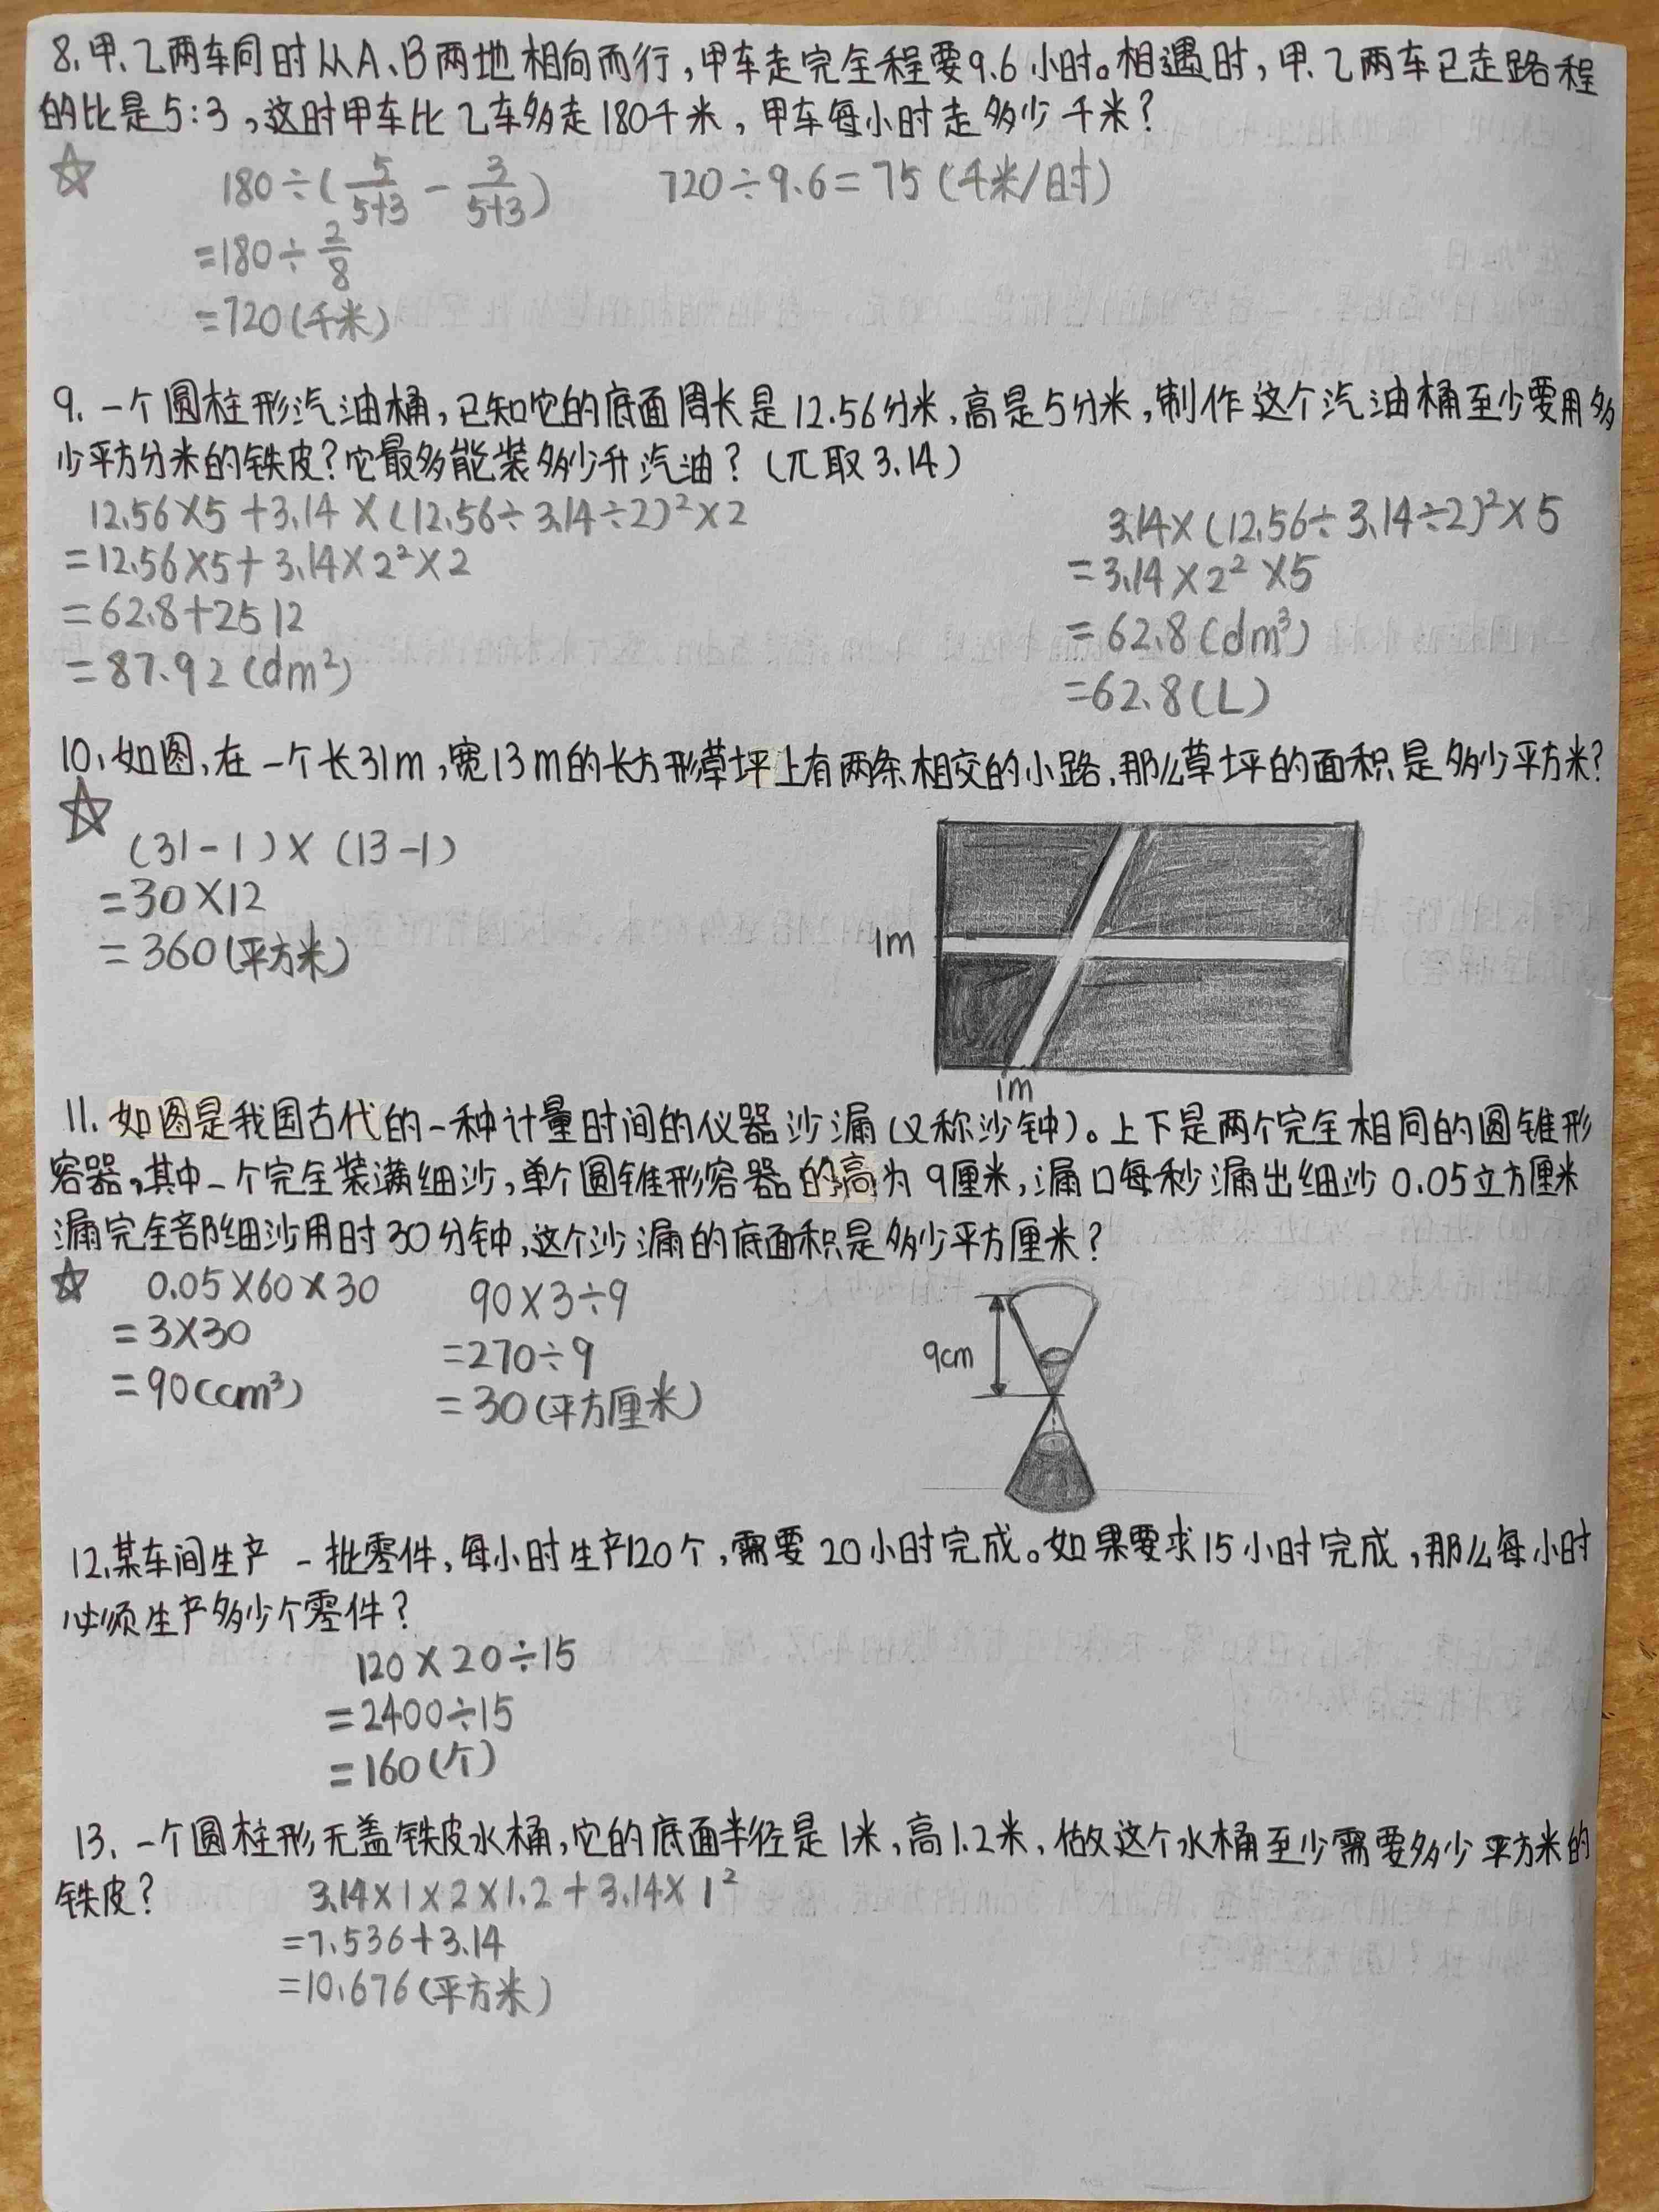 8.甲、乙两车同时从A、B两地相向而行,甲车走完全程要9.6小时。相遇时,甲、乙两车已走路程
的比是5:3,这时甲车比乙车多走180千米,甲车每小时走多少千米?
☆ 180÷(5/(5+3) - 3/(5+3)) 720÷9.6=75(千米/时)
=180÷2/8
=720(千米)
9.一个圆柱形汽油桶,已知它的底面周长是12.56分米,高是5分米,制作这个汽油桶至少要用多
少平方分米的铁皮?它最多能装多少升汽油?(π取3.14)
12.56×5+3.14×(12.56÷3.14÷2)²×2
=12.56×5+3.14×2²×2
=62.8+25 12
=87.92(dm²)
3.14×(12.56÷3.14÷2)²×5
=3.14×2²×5
=62.8(dm³)
=62.8(L)
10.如图,在一个长31m,宽13m的长方形草坪上有两条相交的小路,那么草坪的面积是多少平方米?
☆
(31-1)×(13-1)
=30×12
=360(平方米)
1m
1m
11.如图是我国古代的一种计量时间的仪器沙漏(又称沙钟)。上下是两个完全相同的圆锥形
容器,其中一个完全装满细沙,单个圆锥形容器的高为9厘米,漏口每秒漏出细沙0.05立方厘米
漏完全部细沙用时30分钟,这个沙漏的底面积是多少平方厘米?
☆ 0.05×60×30
=3×30
=90(cm³)
90×3÷9
=270÷9
=30(平方厘米)
9cm
12.某车间生产一批零件,每小时生产120个,需要20小时完成。如果要求15小时完成,那么每小时
必须生产多少个零件?
120×20÷15
=2400÷15
=160(个)
13.一个圆柱形无盖铁皮水桶,它的底面半径是1米,高1.2米,做这个水桶至少需要多少平方米的
铁皮? 3.14×1×2×1.2+3.14×1²
=7.536+3.14
=10.676(平方米)